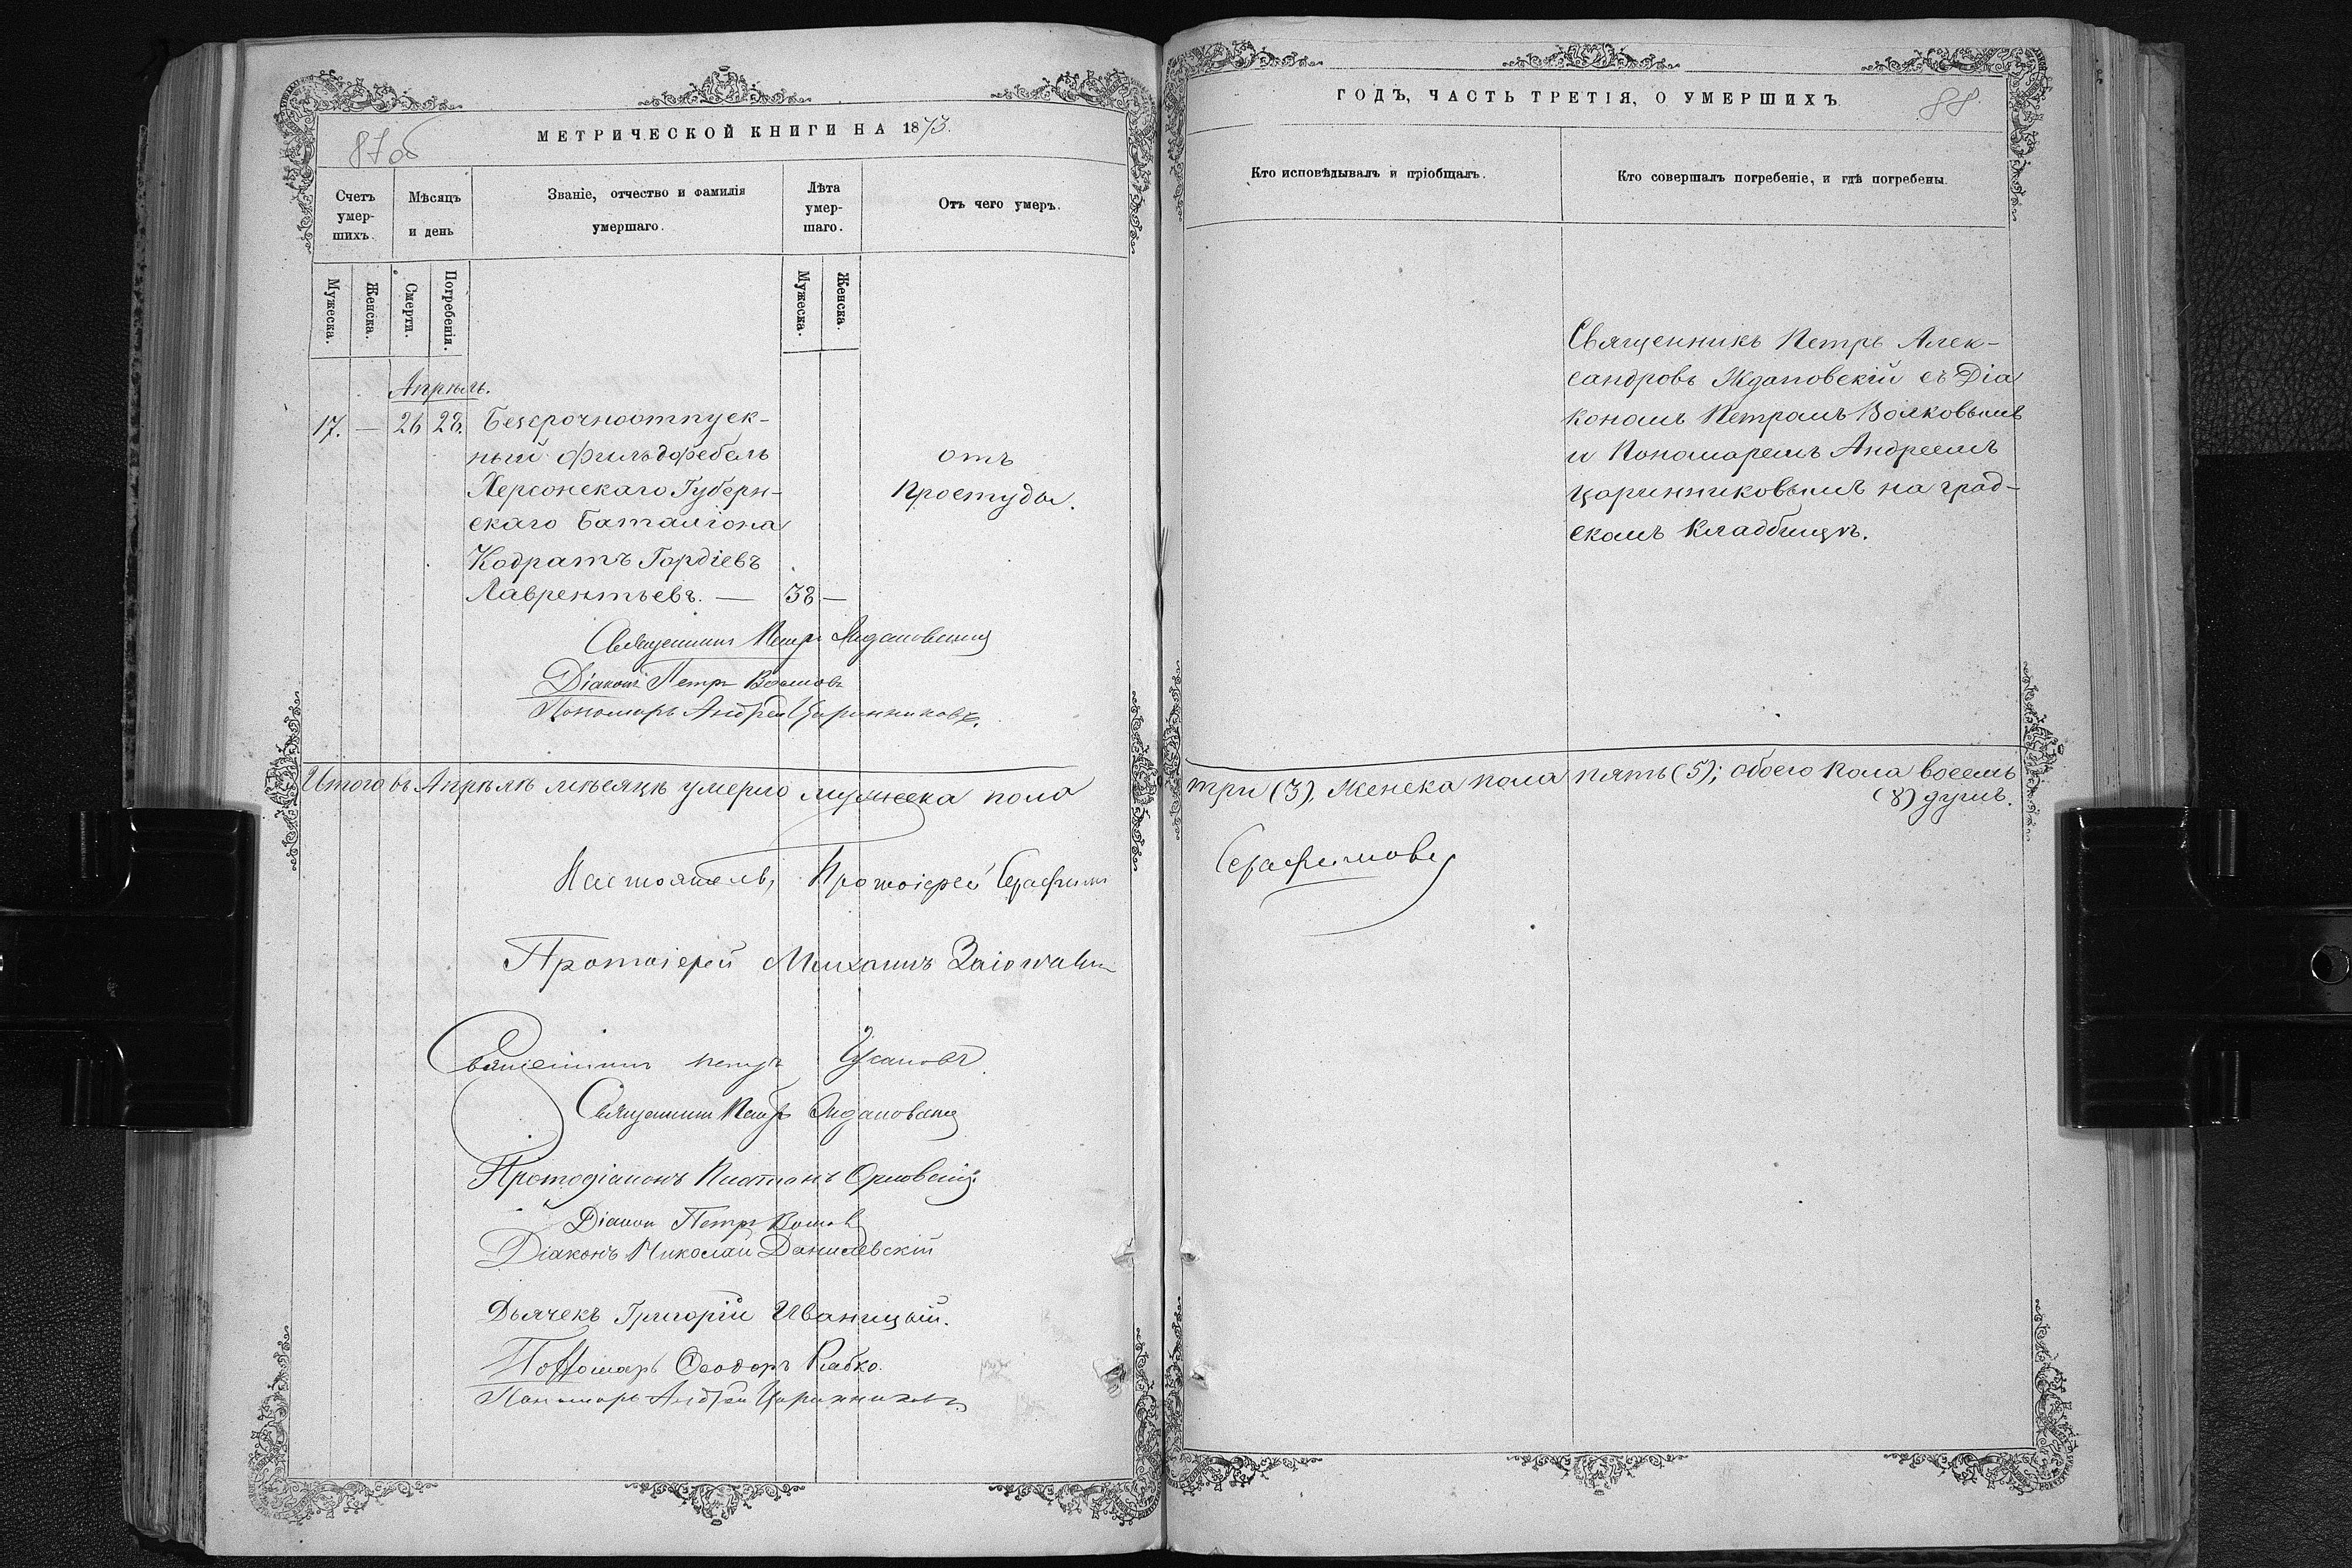 87об
МЕТРИЧЕСКОЙ КНИГИ НА 1873.
Счетъ умер- шихъ.
Мѣсяцъ и день
Званіе, отчество и фамилія умершаго.
Лѣта умер- шаго.
Отъ чего умеръ.
Мужеска.
Женска.
Смерти.
Погребенія.
Мужеска.
Женска.
Апрѣль.
17. — 26 28. Безсрочноотпуск-
ный Фильдфебель
Херсонскаго Губерн-
скаго Баталіона
Кодратъ Гордіевъ
Лаврентьевъ. — 38 —
отъ
Простуды.
Священникъ Петръ Ждановскій
Діаконъ Петръ Волковъ
Пономарь Андрей Царинниковъ.
Итого въ Апрѣлѣ мѣсяцѣ умерло мужеска пола
Настоятель, Протоіерей Серафимъ
Протоіерей Михаилъ
Священникъ Петръ
Священникъ Петръ Ждановскій
Протодіаконъ Платонъ Орловскій
Діаконъ Петръ Волковъ
Діаконъ Николай Данилевскій
Дьячекъ Григорій Иваницкій.
Пономарь Ѳеодоръ
Пономарь Андрей Царинниковъ
ГОДЪ, ЧАСТЬ ТРЕТІЯ, О УМЕРШИХЪ
88
Кто исповѣдывалъ и пріобщалъ.
Кто совершалъ погребеніе, и гдѣ погребены.
Священникъ Петръ Алек-
сандровъ Ждановскій съ Діа
кономъ Петромъ Волковымъ
и Пономаремъ Андреемъ
Царинниковымъ на град-
скомъ Кладбищѣ.
три (3), Женска пола пять (5); обоего пола восемь
(8) душъ.
Серафимовъ